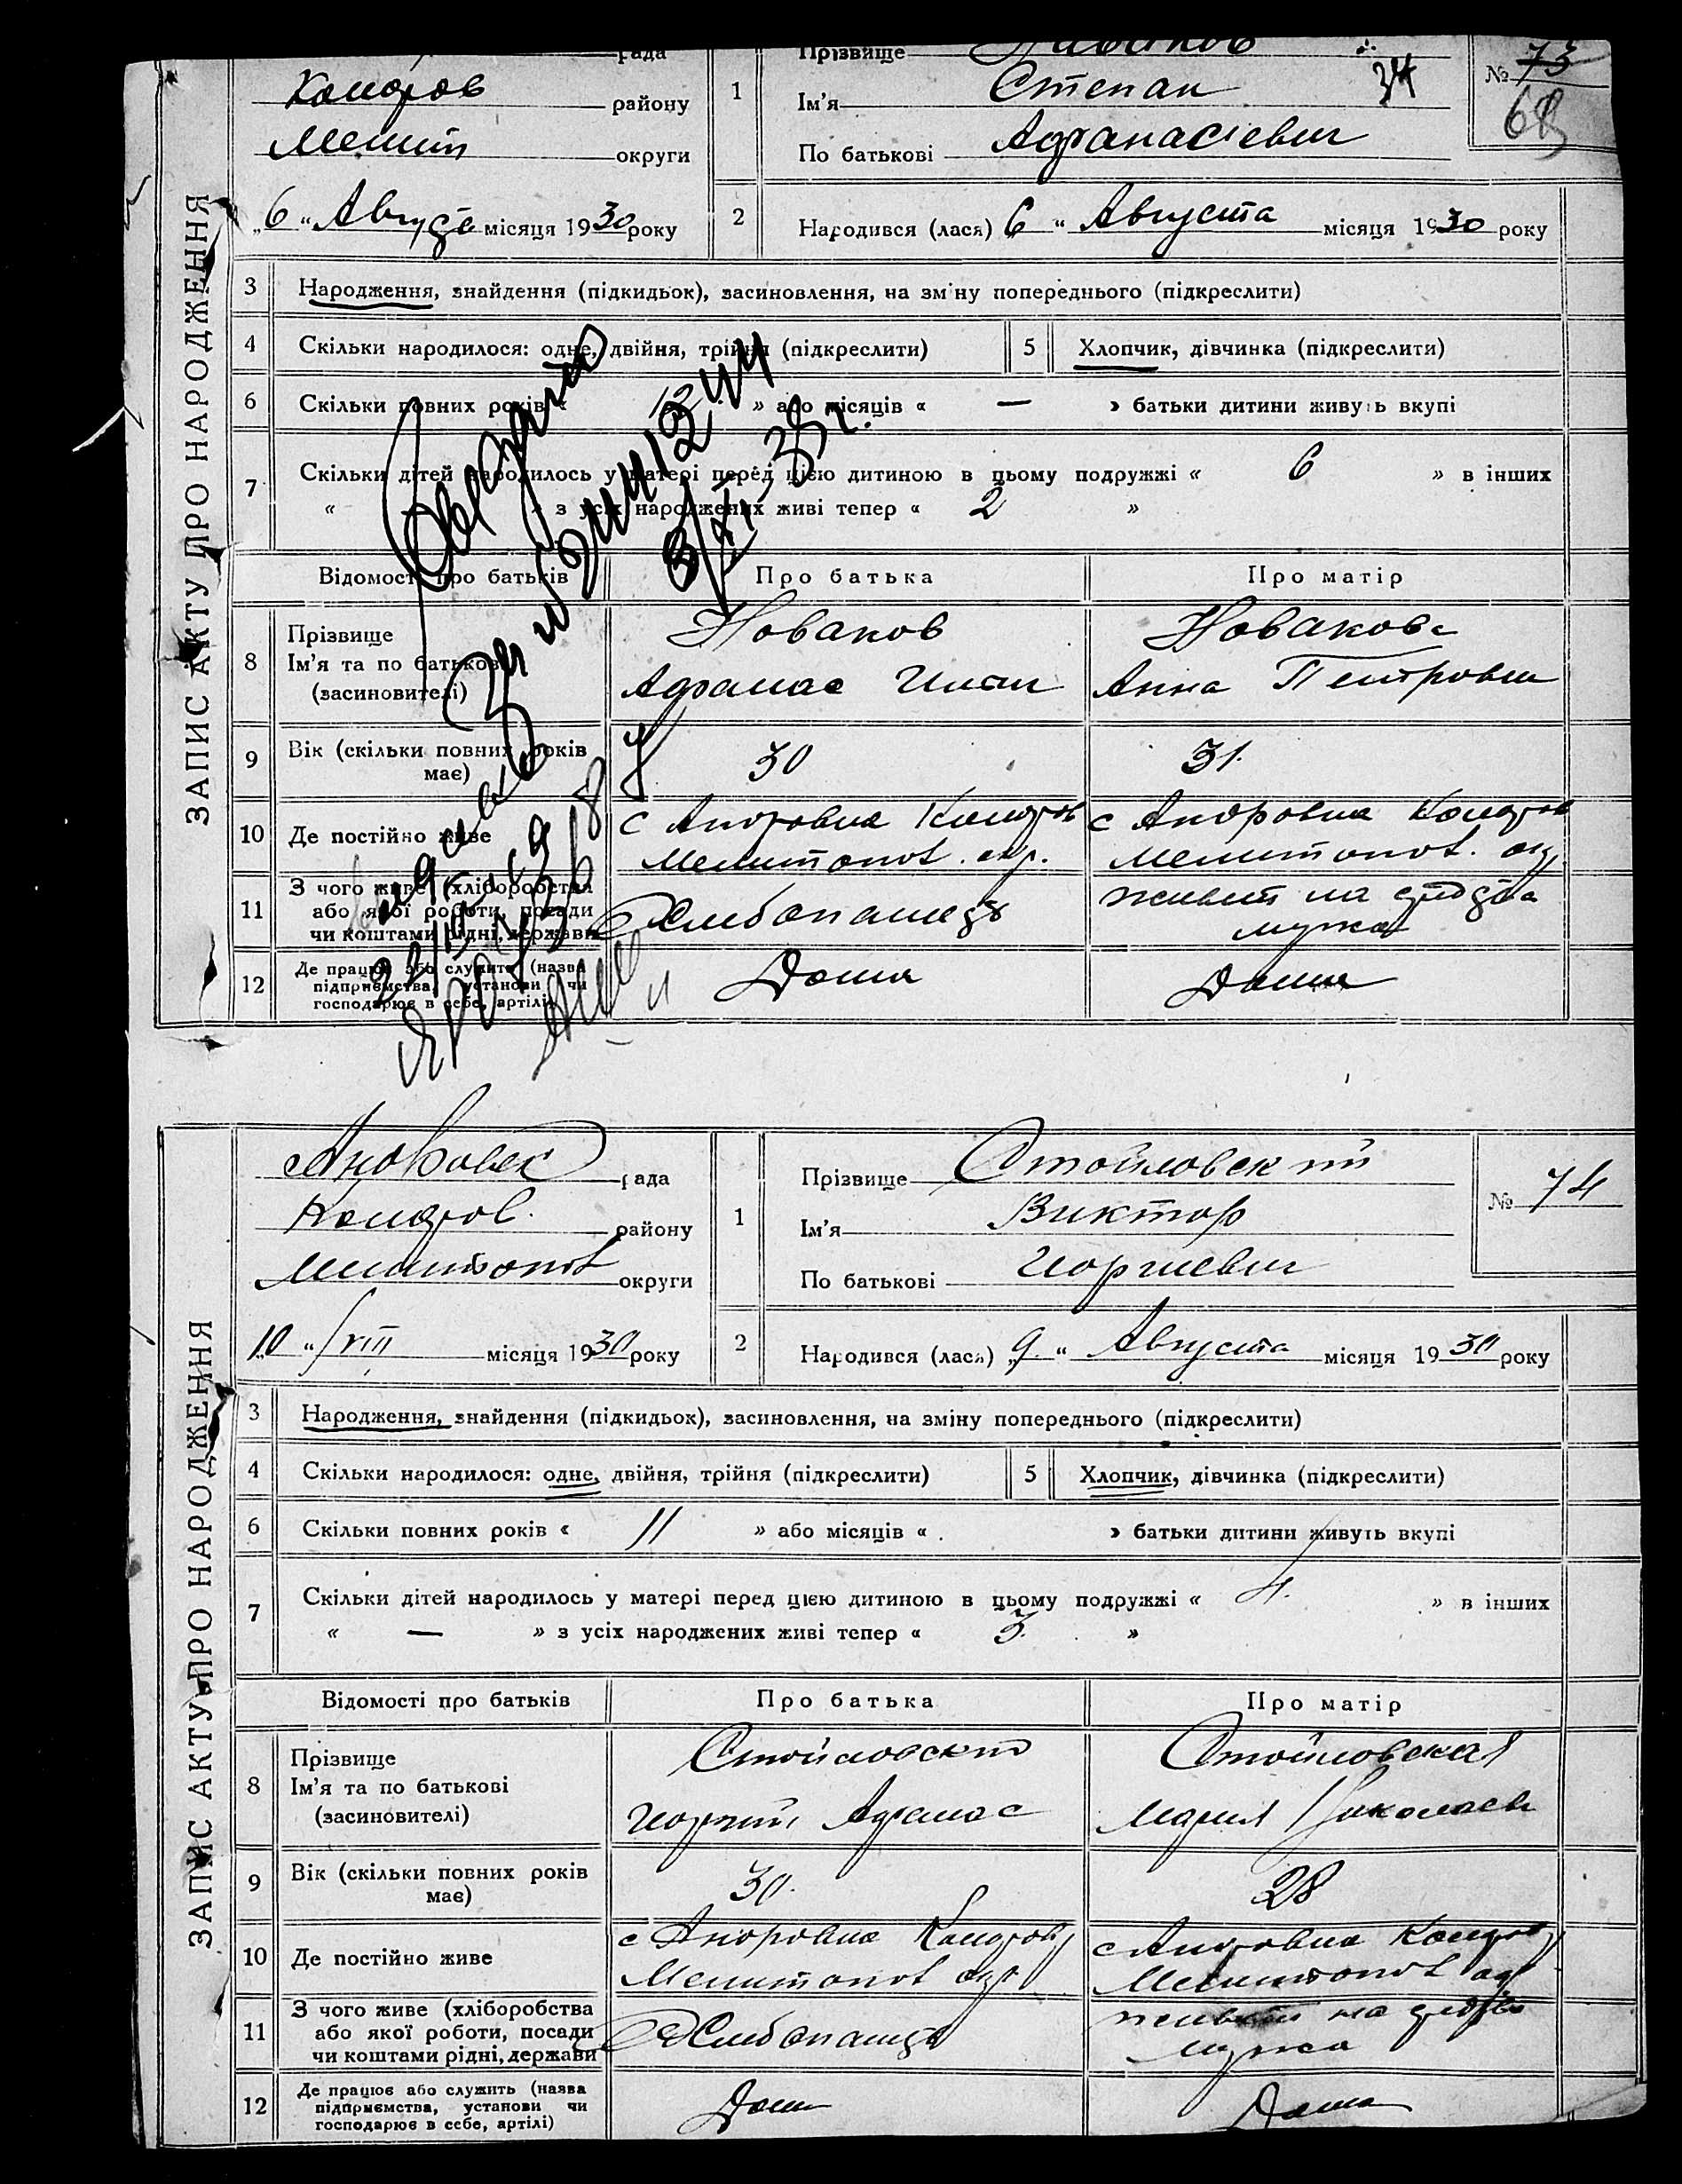 рада
Прізвище
№ 73
района
району
1
Ім'я Степан
34
68
Мелит округи
По батькові Афанасіевич
„6 “ Августа місяця 1930 року
2
Народився (лася) 6 “ Августа місяця 1930 року
ЗАПИС АКТУ ПРО НАРОДЖЕННЯ
3 Народження, знайдення (підкидьок), засиновлення, на зміну попереднього (підкреслити)
4 Скільки народилося: одне, двійня, трійня (підкреслити) 5 Хлопчик, дівчинка (підкреслити)
6 Скільки повних років « 12 » або місяців « — » батьки дитини живуть вкупі
7 Скільки дітей народилось у матері перед цією дитиною в цьому подружжі « 6 » в інших
« » з усіх народжених живі тепер « 2 »
Відомості про батьків Про батька Про матір
8 Прізвище
Ім'я та по батькові
(засиновителі)
Новаков
Афанас
Новакова
Анна Петровна
9 Вік (скільки повних років
має)
30
31
10 Де постійно живе
Мелитопол. окр.
Мелитопол.
11 З чого живе (хліборобства
або якої роботи, посади
чи коштами рідні, держави
Хлебопашец
живет на средства
мужа
12 Де працює або служить (назва
підприємства, установи чи
господарює в себе, артілі)
Дома
Дома
рада
Прізвище Стойловский
№ 74
району
1
Ім'я Виктор
Мелитопол округи
По батькові Иоргиевич
10 “ VIII місяця 1930 року
2
Народився (лася) „9 “ Августа місяця 1930 року
ЗАПИС АКТУ ПРО НАРОДЖЕННЯ
3 Народження, знайдення (підкидьок), засиновлення, на зміну попереднього (підкреслити)
4 Скільки народилося: одне, двійня, трійня (підкреслити) 5 Хлопчик, дівчинка (підкреслити)
6 Скільки повних років « 11 » або місяців « » батьки дитини живуть вкупі
7 Скільки дітей народилось у матері перед цією дитиною в цьому подружжі « 4. » в інших
« — » з усіх народжених живі тепер « 3. »
Відомості про батьків Про батька Про матір
8 Прізвище
Ім'я та по батькові
(засиновителі)
Стойловский
Иоргий Афанас
Стойловская
Мария Николаев
9 Вік (скільки повних років
має)
30.
28
10 Де постійно живе
Мелитопол окр
Мелитопол окр
11 З чого живе (хліборобства
або якої роботи, посади
чи коштами рідні, держави
Хлебопашец
живет на средства
мужа
12 Де працює або служить (назва
підприємства, установи чи
господарює в себе, артілі)
Дома
Дома